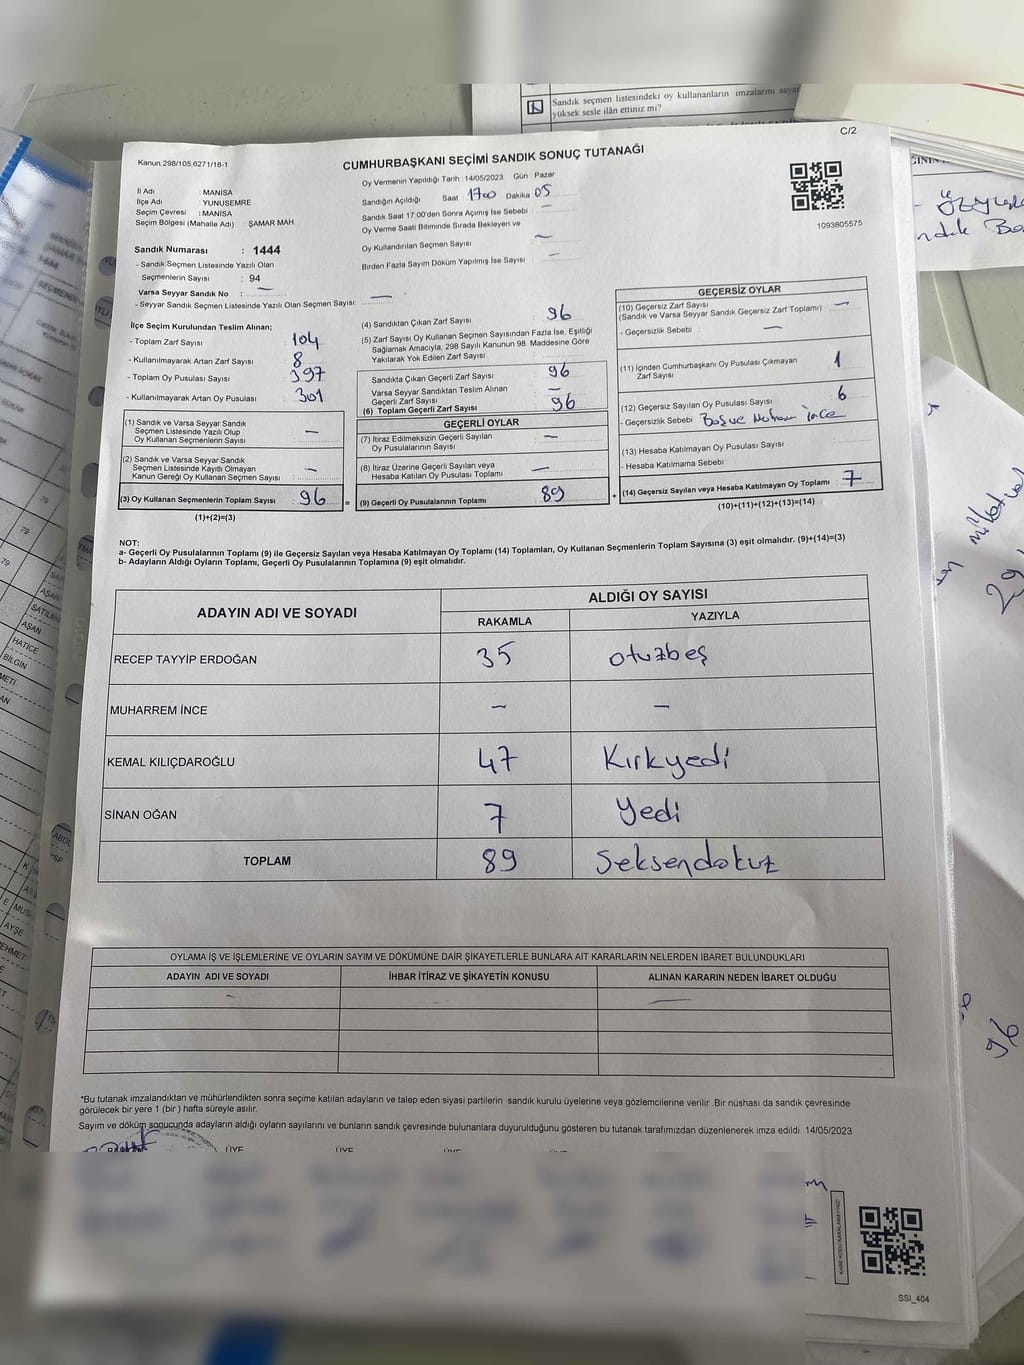 Sandık seçmen listesindeki oy kullananların imzalarını
yüksek sesle ilân ettiniz mi?
C/2
Kanun,298/105,6271/18-1
CUMHURBAŞKANI SEÇİMİ SANDIK SONUÇ TUTANAĞI
1093805575
İl Adı : MANİSA
İlçe Adı : YUNUSEMRE
Seçim Çevresi : MANİSA
Seçim Bölgesi (Mahalle Adı) : ŞAMAR MAH.
Oy Vermenin Yapıldığı Tarih :14/05/2023 Gün : Pazar
Sandığın Açıldığı Saat : 1700 Dakika 05
Sandık Saat 17:00'den Sonra Açımış İse Sebebi : —
Oy Verme Saati Bitiminde Sırada Bekleyen ve
Oy Kullandırılan Seçmen Sayısı : —
Birden Fazla Sayım Döküm Yapılmış İse Sayısı : —
Sandık Numarası : 1444
- Sandık Seçmen Listesinde Yazılı Olan
Seçmenlerin Sayısı : 94
Varsa Seyyar Sandık No : —
- Seyyar Sandık Seçmen Listesinde Yazılı Olan Seçmen Sayısı: —
İlçe Seçim Kurulundan Teslim Alınan;
- Toplam Zarf Sayısı : 104
- Kullanılmayarak Artan Zarf Sayısı : 8
- Toplam Oy Pusulası Sayısı : 397
- Kullanılmayarak Artan Oy Pusulası : 301
(1) Sandık ve Varsa Seyyar Sandık
Seçmen Listesinde Yazılı Olup
Oy Kullanan Seçmenlerin Sayısı : —
(2) Sandık ve Varsa Seyyar Sandık
Seçmen Listesinde Kayıtlı Olmayan
Kanun Gereği Oy Kullanan Seçmen Sayısı : —
(3) Oy Kullanan Seçmenlerin Toplam Sayısı : 96 =
(1)+(2)=(3)
(4) Sandıktan Çıkan Zarf Sayısı : 96
(5) Zarf Sayısı Oy Kullanan Seçmen Sayısından Fazla İse, Eşitliği
Sağlamak Amacıyla, 298 Sayılı Kanunun 98. Maddesine Göre
Yakılarak Yok Edilen Zarf Sayısı : —
Sandıkta Çıkan Geçerli Zarf Sayısı : 96
Varsa Seyyar Sandıktan Teslim Alınan
Geçerli Zarf Sayısı : —
(6) Toplam Geçerli Zarf Sayısı : 96
GEÇERLİ OYLAR
(7) İtiraz Edilmeksizin Geçerli Sayılan
Oy Pusulalarının Sayısı : —
(8) İtiraz Üzerine Geçerli Sayılan veya
Hesaba Katılan Oy Pusulası Toplamı : —
(9) Geçerli Oy Pusulalarının Toplamı : 89 +
GEÇERSİZ OYLAR
(10) Geçersiz Zarf Sayısı : —
(Sandık ve Varsa Seyyar Sandık Geçersiz Zarf Toplamı)
- Geçersizlik Sebebi : —
(11) İçinden Cumhurbaşkanı Oy Pusulası Çıkmayan : 1
Zarf Sayısı
(12) Geçersiz Sayılan Oy Pusulası Sayısı : 6
- Geçersizlik Sebebi Boş ve Muharrem İnce
(13) Hesaba Katılmayan Oy Pusulası Sayısı :
- Hesaba Katılmama Sebebi :
(14) Geçersiz Sayılan veya Hesaba Katılmayan Oy Toplamı : 7
(10)+(11)+(12)+(13)=(14)
NOT:
a- Geçerli Oy Pusulalarının Toplamı (9) ile Geçersiz Sayılan veya Hesaba Katılmayan Oy Toplamı (14) Toplamları, Oy Kullanan Seçmenlerin Toplam Sayısına (3) eşit olmalıdır. (9)+(14)=(3)
b- Adayların Aldığı Oyların Toplamı, Geçerli Oy Pusulalarının Toplamına (9) eşit olmalıdır.
ADAYIN ADI VE SOYADI ALDIĞI OY SAYISI
RAKAMLA YAZIYLA
RECEP TAYYİP ERDOĞAN 35 otuzbeş
MUHARREM İNCE — —
KEMAL KILIÇDAROĞLU 47 Kırkyedi
SİNAN OĞAN 7 Yedi
TOPLAM 89 Seksendokuz
OYLAMA İŞ VE İŞLEMLERİNE VE OYLARIN SAYIM VE DÖKÜMÜNE DAİR ŞİKAYETLERLE BUNLARA AİT KARARLARIN NELERDEN İBARET BULUNDUKLARI
ADAYIN ADI VE SOYADI İHBAR İTİRAZ VE ŞİKAYETİN KONUSU ALINAN KARARIN NEDEN İBARET OLDUĞU
— —
*Bu tutanak imzalandıktan ve mühürlendikten sonra seçime katılan adayların ve talep eden siyasi partilerin sandık kurulu üyelerine veya gözlemcilerine verilir. Bir nüshası da sandık çevresinde
görülecek bir yere 1 (bir) hafta süreyle asılır.
Sayım ve döküm sonucunda adayların aldığı oyların sayılarını ve bunların sandık çevresinde bulunanlara duyurulduğunu gösteren bu tutanak tarafımızdan düzenlenerek imza edildi. 14/05/2023
ÜYE ÜYE ÜYE ÜYE
SSİ_404
96